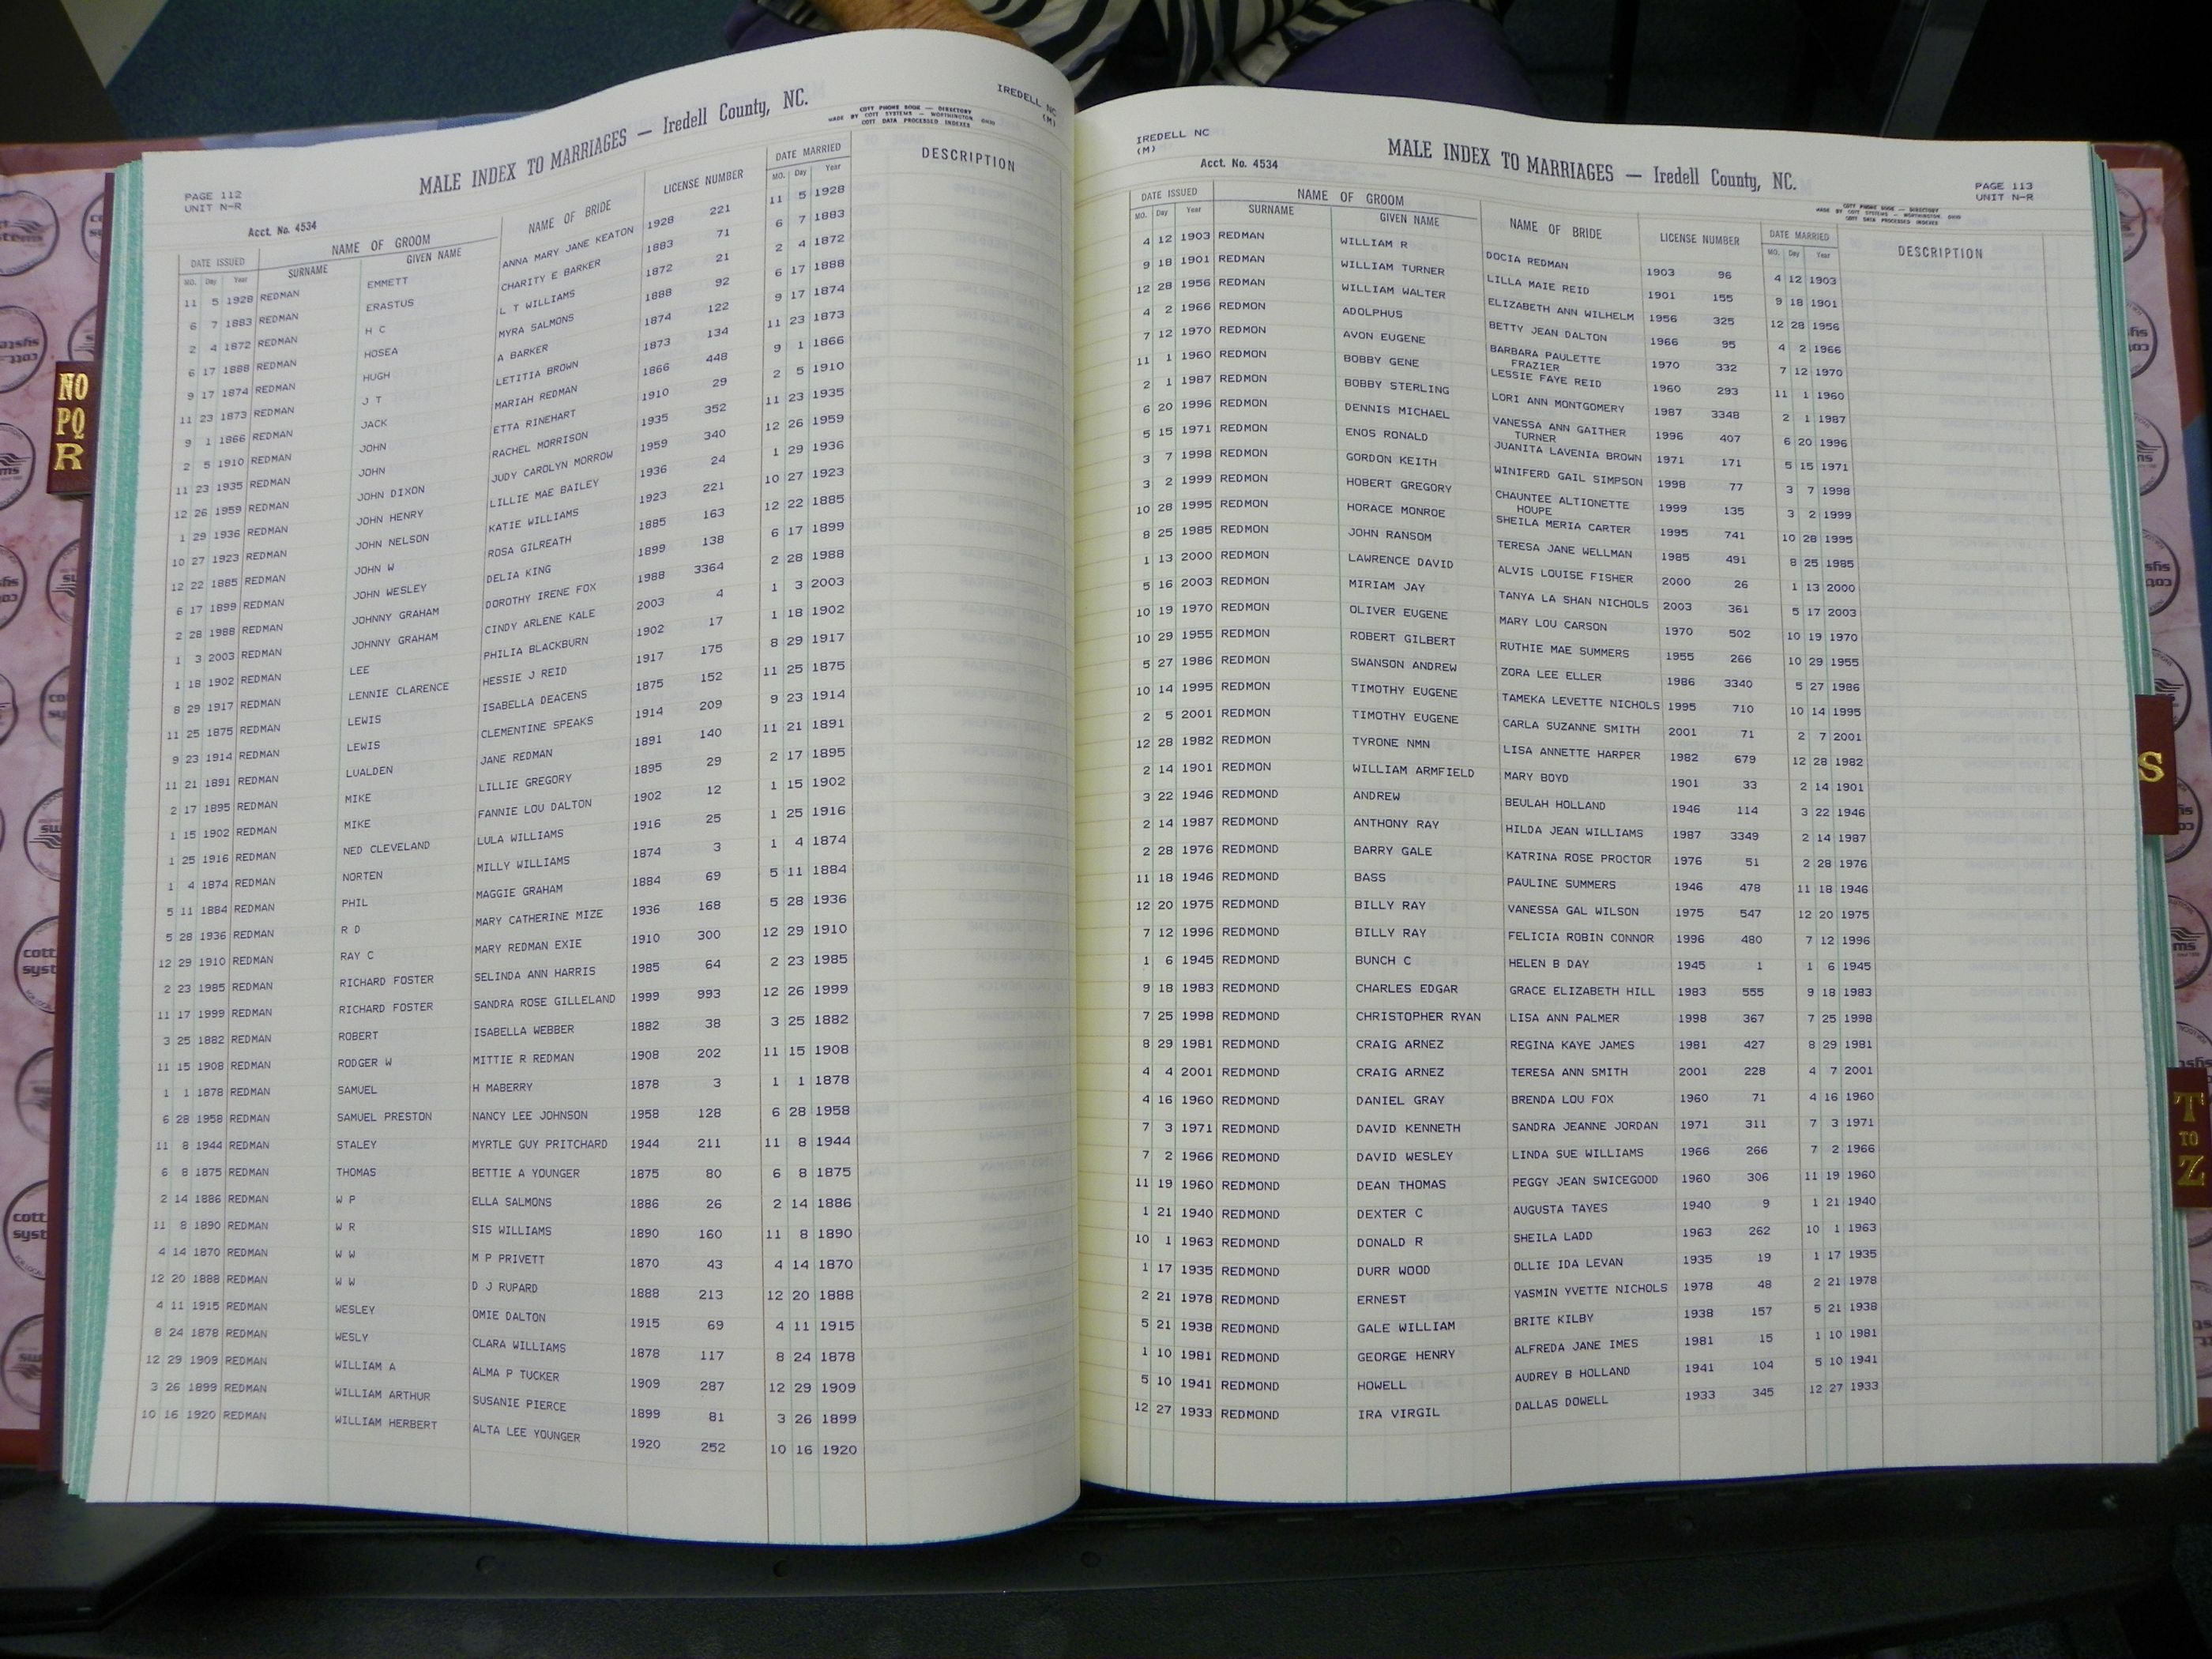 PAGE 112
UNIT N-R
MALE INDEX TO MARRIAGES — Iredell County, NC.
COTT PHONE BOOK — DIRECTORY
MADE BY COTT SYSTEMS — WORTHINGTON, OHIO
COTT DATA PROCESSED INDEXES
IREDELL NC
(M)
Acct. No. 4534
DATE ISSUED NAME OF GROOM NAME OF BRIDE LICENSE NUMBER DATE MARRIED DESCRIPTION
MO. Day Year SURNAME GIVEN NAME MO. Day Year
11 5 1928 REDMAN EMMETT ANNA MARY JANE KEATON 1928 221 11 5 1928
6 7 1883 REDMAN ERASTUS CHARITY E BARKER 1883 71 6 7 1883
2 4 1872 REDMAN H C L T WILLIAMS 1872 21 2 4 1872
6 17 1888 REDMAN HOSEA MYRA SALMONS 1888 92 6 17 1888
9 17 1874 REDMAN HUGH A BARKER 1874 122 9 17 1874
11 23 1873 REDMAN J T LETITIA BROWN 1873 134 11 23 1873
9 1 1866 REDMAN JACK MARIAH REDMAN 1866 448 9 1 1866
2 5 1910 REDMAN JOHN ETTA RINEHART 1910 29 2 5 1910
11 23 1935 REDMAN JOHN RACHEL MORRISON 1935 352 11 23 1935
12 26 1959 REDMAN JOHN DIXON JUDY CAROLYN MORROW 1959 340 12 26 1959
1 29 1936 REDMAN JOHN HENRY LILLIE MAE BAILEY 1936 24 1 29 1936
10 27 1923 REDMAN JOHN NELSON KATIE WILLIAMS 1923 221 10 27 1923
12 22 1885 REDMAN JOHN W ROSA GILREATH 1885 163 12 22 1885
6 17 1899 REDMAN JOHN WESLEY DELIA KING 1899 138 6 17 1899
2 28 1988 REDMAN JOHNNY GRAHAM DOROTHY IRENE FOX 1988 3364 2 28 1988
1 3 2003 REDMAN JOHNNY GRAHAM CINDY ARLENE KALE 2003 4 1 3 2003
1 18 1902 REDMAN LEE PHILIA BLACKBURN 1902 17 1 18 1902
8 29 1917 REDMAN LENNIE CLARENCE HESSIE J REID 1917 175 8 29 1917
11 25 1875 REDMAN LEWIS ISABELLA DEACENS 1875 152 11 25 1875
9 23 1914 REDMAN LEWIS CLEMENTINE SPEAKS 1914 209 9 23 1914
11 21 1891 REDMAN LUALDEN JANE REDMAN 1891 140 11 21 1891
2 17 1895 REDMAN MIKE LILLIE GREGORY 1895 29 2 17 1895
1 15 1902 REDMAN MIKE FANNIE LOU DALTON 1902 12 1 15 1902
1 25 1916 REDMAN NED CLEVELAND LULA WILLIAMS 1916 25 1 25 1916
1 4 1874 REDMAN NORTEN MILLY WILLIAMS 1874 3 1 4 1874
5 11 1884 REDMAN PHIL MAGGIE GRAHAM 1884 69 5 11 1884
5 28 1936 REDMAN R D MARY CATHERINE MIZE 1936 168 5 28 1936
12 29 1910 REDMAN RAY C MARY REDMAN EXIE 1910 300 12 29 1910
2 23 1985 REDMAN RICHARD FOSTER SELINDA ANN HARRIS 1985 64 2 23 1985
11 17 1999 REDMAN RICHARD FOSTER SANDRA ROSE GILLELAND 1999 993 12 26 1999
3 25 1882 REDMAN ROBERT ISABELLA WEBBER 1882 38 3 25 1882
11 15 1908 REDMAN RODGER W MITTIE R REDMAN 1908 202 11 15 1908
1 1 1878 REDMAN SAMUEL H MABERRY 1878 3 1 1 1878
6 28 1958 REDMAN SAMUEL PRESTON NANCY LEE JOHNSON 1958 128 6 28 1958
11 8 1944 REDMAN STALEY MYRTLE GUY PRITCHARD 1944 211 11 8 1944
6 8 1875 REDMAN THOMAS BETTIE A YOUNGER 1875 80 6 8 1875
2 14 1886 REDMAN W P ELLA SALMONS 1886 26 2 14 1886
11 8 1890 REDMAN W R SIS WILLIAMS 1890 160 11 8 1890
4 14 1870 REDMAN W W M P PRIVETT 1870 43 4 14 1870
12 20 1888 REDMAN W W D J RUPARD 1888 213 12 20 1888
4 11 1915 REDMAN WESLEY OMIE DALTON 1915 69 4 11 1915
8 24 1878 REDMAN WESLY CLARA WILLIAMS 1878 117 8 24 1878
12 29 1909 REDMAN WILLIAM A ALMA P TUCKER 1909 287 12 29 1909
3 26 1899 REDMAN WILLIAM ARTHUR SUSANIE PIERCE 1899 81 3 26 1899
10 16 1920 REDMAN WILLIAM HERBERT ALTA LEE YOUNGER 1920 252 10 16 1920
IREDELL NC
(M)
Acct. No. 4534
MALE INDEX TO MARRIAGES — Iredell County, NC.
COTT PHONE BOOK — DIRECTORY
MADE BY COTT SYSTEMS — WORTHINGTON, OHIO
COTT DATA PROCESSED INDEXES
PAGE 113
UNIT N-R
DATE ISSUED NAME OF GROOM NAME OF BRIDE LICENSE NUMBER DATE MARRIED DESCRIPTION
MO. Day Year SURNAME GIVEN NAME MO. Day Year
4 12 1903 REDMAN WILLIAM R DOCIA REDMAN 1903 96 4 12 1903
9 18 1901 REDMAN WILLIAM TURNER LILLA MAIE REID 1901 155 9 18 1901
12 28 1956 REDMAN WILLIAM WALTER ELIZABETH ANN WILHELM 1956 325 12 28 1956
4 2 1966 REDMON ADOLPHUS BETTY JEAN DALTON 1966 95 4 2 1966
7 12 1970 REDMON AVON EUGENE BARBARA PAULETTE 1970 332 7 12 1970
FRAZIER
11 1 1960 REDMON BOBBY GENE LESSIE FAYE REID 1960 293 11 1 1960
2 1 1987 REDMON BOBBY STERLING LORI ANN MONTGOMERY 1987 3348 2 1 1987
6 20 1996 REDMON DENNIS MICHAEL VANESSA ANN GAITHER 1996 407 6 20 1996
TURNER
5 15 1971 REDMON ENOS RONALD JUANITA LAVENIA BROWN 1971 171 5 15 1971
3 7 1998 REDMON GORDON KEITH WINIFERD GAIL SIMPSON 1998 77 3 7 1998
3 2 1999 REDMON HOBERT GREGORY CHAUNTEE ALTIONETTE 1999 135 3 2 1999
HOUPE
10 28 1995 REDMON HORACE MONROE SHEILA MERIA CARTER 1995 741 10 28 1995
8 25 1985 REDMON JOHN RANSOM TERESA JANE WELLMAN 1985 491 8 25 1985
1 13 2000 REDMON LAWRENCE DAVID ALVIS LOUISE FISHER 2000 26 1 13 2000
5 16 2003 REDMON MIRIAM JAY TANYA LA SHAN NICHOLS 2003 361 5 17 2003
10 19 1970 REDMON OLIVER EUGENE MARY LOU CARSON 1970 502 10 19 1970
10 29 1955 REDMON ROBERT GILBERT RUTHIE MAE SUMMERS 1955 266 10 29 1955
5 27 1986 REDMON SWANSON ANDREW ZORA LEE ELLER 1986 3340 5 27 1986
10 14 1995 REDMON TIMOTHY EUGENE TAMEKA LEVETTE NICHOLS 1995 710 10 14 1995
2 5 2001 REDMON TIMOTHY EUGENE CARLA SUZANNE SMITH 2001 71 2 7 2001
12 28 1982 REDMON TYRONE NMN LISA ANNETTE HARPER 1982 679 12 28 1982
2 14 1901 REDMON WILLIAM ARMFIELD MARY BOYD 1901 33 2 14 1901
3 22 1946 REDMOND ANDREW BEULAH HOLLAND 1946 114 3 22 1946
2 14 1987 REDMOND ANTHONY RAY HILDA JEAN WILLIAMS 1987 3349 2 14 1987
2 28 1976 REDMOND BARRY GALE KATRINA ROSE PROCTOR 1976 51 2 28 1976
11 18 1946 REDMOND BASS PAULINE SUMMERS 1946 478 11 18 1946
12 20 1975 REDMOND BILLY RAY VANESSA GAL WILSON 1975 547 12 20 1975
7 12 1996 REDMOND BILLY RAY FELICIA ROBIN CONNOR 1996 480 7 12 1996
1 6 1945 REDMOND BUNCH C HELEN B DAY 1945 1 1 6 1945
9 18 1983 REDMOND CHARLES EDGAR GRACE ELIZABETH HILL 1983 555 9 18 1983
7 25 1998 REDMOND CHRISTOPHER RYAN LISA ANN PALMER 1998 367 7 25 1998
8 29 1981 REDMOND CRAIG ARNEZ REGINA KAYE JAMES 1981 427 8 29 1981
4 4 2001 REDMOND CRAIG ARNEZ TERESA ANN SMITH 2001 228 4 7 2001
4 16 1960 REDMOND DANIEL GRAY BRENDA LOU FOX 1960 71 4 16 1960
7 3 1971 REDMOND DAVID KENNETH SANDRA JEANNE JORDAN 1971 311 7 3 1971
7 2 1966 REDMOND DAVID WESLEY LINDA SUE WILLIAMS 1966 266 7 2 1966
11 19 1960 REDMOND DEAN THOMAS PEGGY JEAN SWICEGOOD 1960 306 11 19 1960
1 21 1940 REDMOND DEXTER C AUGUSTA TAYES 1940 9 1 21 1940
10 1 1963 REDMOND DONALD R SHEILA LADD 1963 262 10 1 1963
1 17 1935 REDMOND DURR WOOD OLLIE IDA LEVAN 1935 19 1 17 1935
2 21 1978 REDMOND ERNEST YASMIN YVETTE NICHOLS 1978 48 2 21 1978
5 21 1938 REDMOND GALE WILLIAM BRITE KILBY 1938 157 5 21 1938
1 10 1981 REDMOND GEORGE HENRY ALFREDA JANE IMES 1981 15 1 10 1981
5 10 1941 REDMOND HOWELL AUDREY B HOLLAND 1941 104 5 10 1941
12 27 1933 REDMOND IRA VIRGIL DALLAS DOWELL 1933 345 12 27 1933
NO
PQ
R
S
T
TO
Z
cott
syst
cott
syst